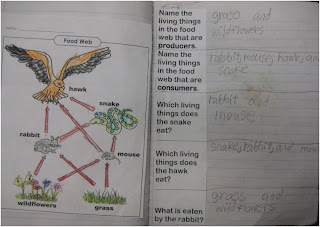 Food Web
hawk
snake
rabbit
mouse
wildflowers
grass
Name the
living things
in the food
web that are
producers.
grass and
wildflowers
Name the
living things
in the food
web that are
consumers.
rabbit, mouse, hawk, and
snake
Which living
things does
the snake
eat?
rabbit and
mouse
Which living
things does
the hawk
eat?
snake, rabbit, and
What is eaten
by the rabbit?
grass and
wildflowers